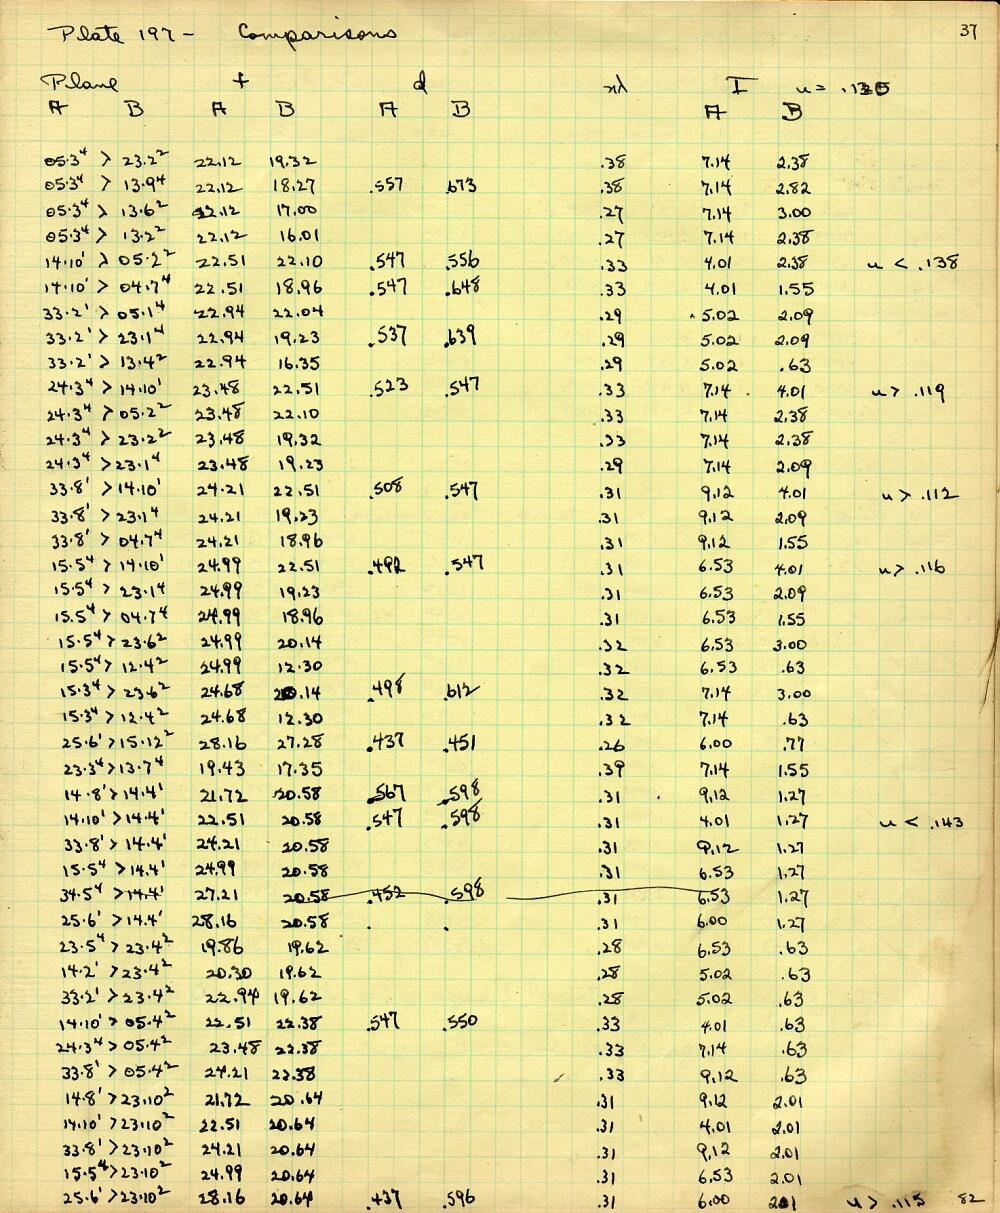 37
Plate 197 - Comparisons
Plane f d nλ I u = .135
A B A B A B A B
05·3⁴ > 23.2² 22.12 19.32 .38 7.14 2.38
05·3⁴ > 13·9⁴ 22.12 18.27 .557 .673 .38 7.14 2.82
05·3⁴ > 13·6² 22.12 17.00 .27 7.14 3.00
05·3⁴ > 13·2² 22.12 16.01 .27 7.14 2.38
14·10' > 05·2² 22.51 22.10 .547 .556 .33 4.01 2.38 u < .138
14·10' > 04·7⁴ 22.51 18.96 .547 .648 .33 4.01 1.55
33·2' > 05·1⁴ 22.94 22.04 .29 5.02 2.09
33·2' > 23·1⁴ 22.94 19.23 .537 .639 .29 5.02 2.09
33·2' > 13·4² 22.94 16.35 .29 5.02 .63
24·3⁴ > 14·10' 23.48 22.51 .523 .547 .33 7.14 4.01 u > .119
24·3⁴ > 05·2² 23.48 22.10 .33 7.14 2.38
24·3⁴ > 23·2² 23.48 19.32 .33 7.14 2.38
24·3⁴ > 23·1⁴ 23.48 19.23 .29 7.14 2.09
33·8' > 14·10' 24.21 22.51 .508 .547 .31 9.12 4.01 u > .112
33·8' > 23·1⁴ 24.21 19.23 .31 9.12 2.09
33·8' > 04·7⁴ 24.21 18.96 .31 9.12 1.55
15·5⁴ > 14·10' 24.99 22.51 .492 .547 .31 6.53 4.01 u > .116
15·5⁴ > 23·1⁴ 24.99 19.23 .31 6.53 2.09
15.5⁴ > 04·7⁴ 24.99 18.96 .31 6.53 1.55
15·5⁴ > 23·6² 24.99 20.14 .32 6.53 3.00
15·5⁴ > 12·4² 24.99 12.30 .32 6.53 .63
15·3⁴ > 23·6² 24.68 20.14 .498 .612 .32 7.14 3.00
15·3⁴ > 12·4² 24.68 12.30 .32 7.14 .63
25·6' > 15·12² 28.16 27.28 .437 .451 .26 6.00 .77
23·3⁴ > 13·7⁴ 19.43 17.35 .39 7.14 1.55
14·8' > 14·4' 21.72 20.58 .567 .598 .31 9.12 1.27
14·10' > 14·4' 22.51 20.58 .547 .598 .31 4.01 1.27 u < .143
33·8' > 14·4' 24.21 20.58 .31 9.12 1.27
15·5⁴ > 14.4' 24.99 20.58 .31 6.53 1.27
34·5⁴ > 14.4' 27.21 20.58 .452 .598 .31 6.53 1.27
25·6' > 14.4' 28.16 20.58 .31 6.00 1.27
23·5⁴ > 23·4² 19.86 19.62 .28 6.53 .63
14·2' > 23·4² 20.30 19.62 .28 5.02 .63
33·2' > 23·4² 22.94 19.62 .28 5.02 .63
14·10' > 05·4² 22.51 22.38 .547 .550 .33 4.01 .63
24·3⁴ > 05·4² 23.48 22.38 .33 7.14 .63
33·8' > 05·4² 24.21 22.38 .33 9.12 .63
14·8' > 23·10² 21.72 20.64 .31 9.12 2.01
14·10' > 23·10² 22.51 20.64 .31 4.01 2.01
33·8' > 23·10² 24.21 20.64 .31 9.12 2.01
15·5⁴ > 23·10² 24.99 20.64 .31 6.53 2.01
25·6' > 23·10² 28.16 20.64 .437 .596 .31 6.00 2.01 u > .115 82